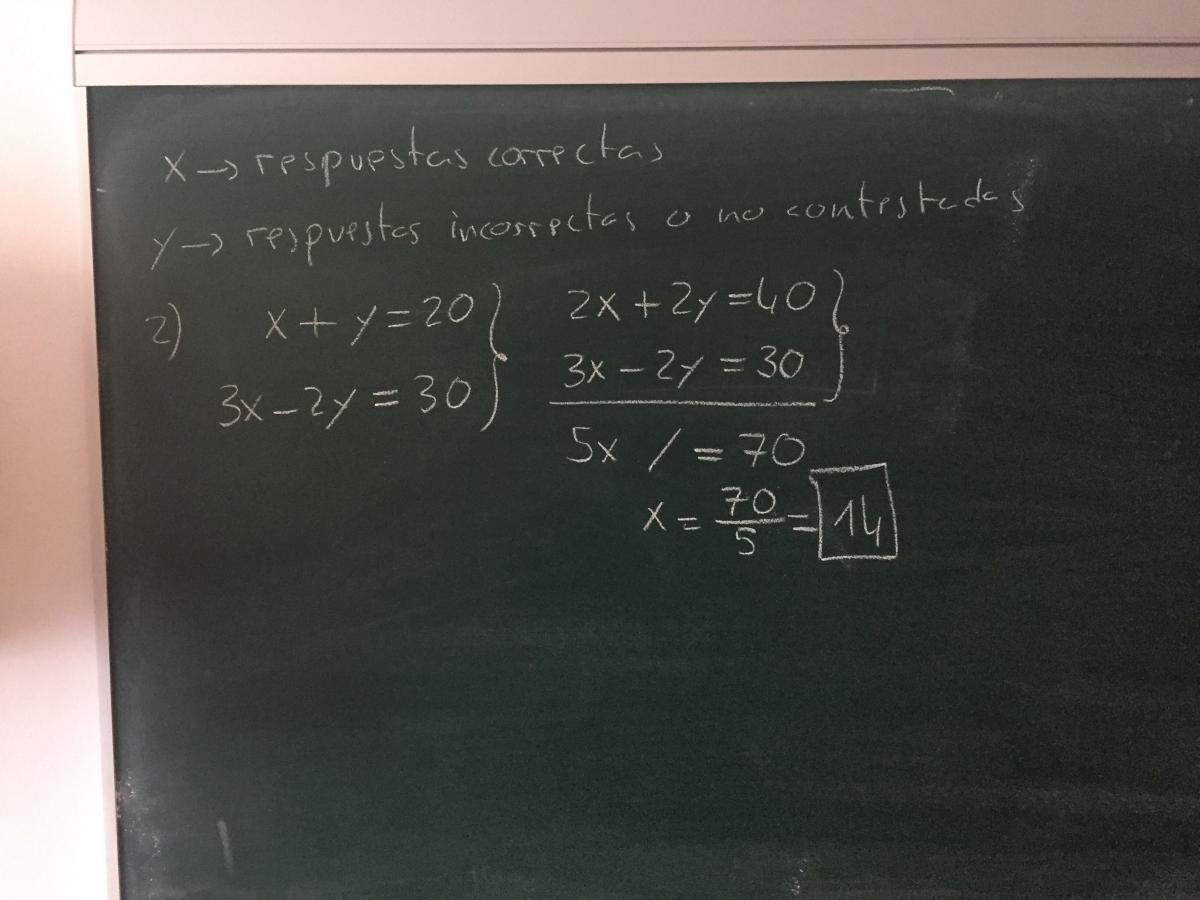 x → respuestas correctas
y → respuestas incorrectas o no contestadas
2) x + y = 20 } 2x + 2y = 40 }
3x - 2y = 30 3x - 2y = 30
5x / = 70
x = 70/5 = 14